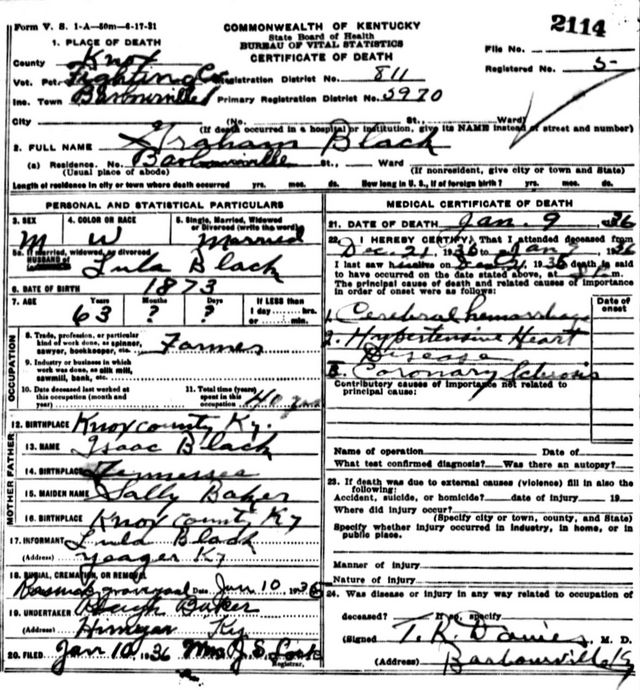 Form V. S. 1-A—50m—6-17-31
COMMONWEALTH OF KENTUCKY
State Board of Health
BUREAU OF VITAL STATISTICS
CERTIFICATE OF DEATH
2114
File No.
Registered No. 5-
1. PLACE OF DEATH
County Knox
Vot. Pct. Fighting Registration District No. 811
Inc. Town Barbourville Primary Registration District No. 5970
City (No. St., Ward)
(If death occurred in a hospital or institution, give its NAME instead of street and number)
2. FULL NAME Graham Black
(a) Residence. No. Barbourville St., Ward
(Usual place of abode) (If nonresident, give city or town and State)
Length of residence in city or town where death occurred yrs. mos. ds. How long in U. S., if of foreign birth? yrs. mos. ds.
PERSONAL AND STATISTICAL PARTICULARS
3. SEX M
4. COLOR OR RACE W
5. Single, Married, Widowed or Divorced (write the word) Married
5a. If married, widowed, or divorced
HUSBAND of Lula Black
6. DATE OF BIRTH 1873
7. AGE Years 63 Months ? Days ? If LESS than 1 day hrs. or min.
OCCUPATION
8. Trade, profession, or particular kind of work done, as spinner, sawyer, bookkeeper, etc. Farmer
9. Industry or business in which work was done, as silk mill, sawmill, bank, etc.
10. Date deceased last worked at this occupation (month and year)
11. Total time (years) spent in this occupation 40 yrs
12. BIRTHPLACE Knox county Ky.
FATHER
13. NAME Isaac Black
14. BIRTHPLACE Tennessee
MOTHER
15. MAIDEN NAME Sally Baker
16. BIRTHPLACE Knox County Ky
17. INFORMANT Lula Black
(Address) Yeager Ky
18. BURIAL, CREMATION, OR REMOVAL
graveyard Date Jan 10 1936
19. UNDERTAKER Baker
(Address) Himyar Ky
20. FILED Jan 10, 1936 Mrs J. S. Registrar.
MEDICAL CERTIFICATE OF DEATH
21. DATE OF DEATH Jan. 9 1936
22. I HEREBY CERTIFY, That I attended deceased from
Dec. 21, 1936 to Jan 1936
I last saw alive on 1936 death is said
to have occurred on the date stated above, at m.
The principal cause of death and related causes of importance in order of onset were as follows:
Date of onset
1. Cerebral hemorrhage
2. Hypertensive Heart
Disease
3. Coronary Sclerosis
Contributory causes of importance not related to principal cause:
Name of operation Date of
What test confirmed diagnosis? Was there an autopsy?
23. If death was due to external causes (violence) fill in also the following:
Accident, suicide, or homicide? date of injury 19
Where did injury occur?
(Specify city or town, county, and State)
Specify whether injury occurred in industry, in home, or in public place.
Manner of injury
Nature of injury
24. Was disease or injury in any way related to occupation of
deceased? If so, specify
(Signed) T. R. Davies, M. D.
(Address) Barbourville Ky